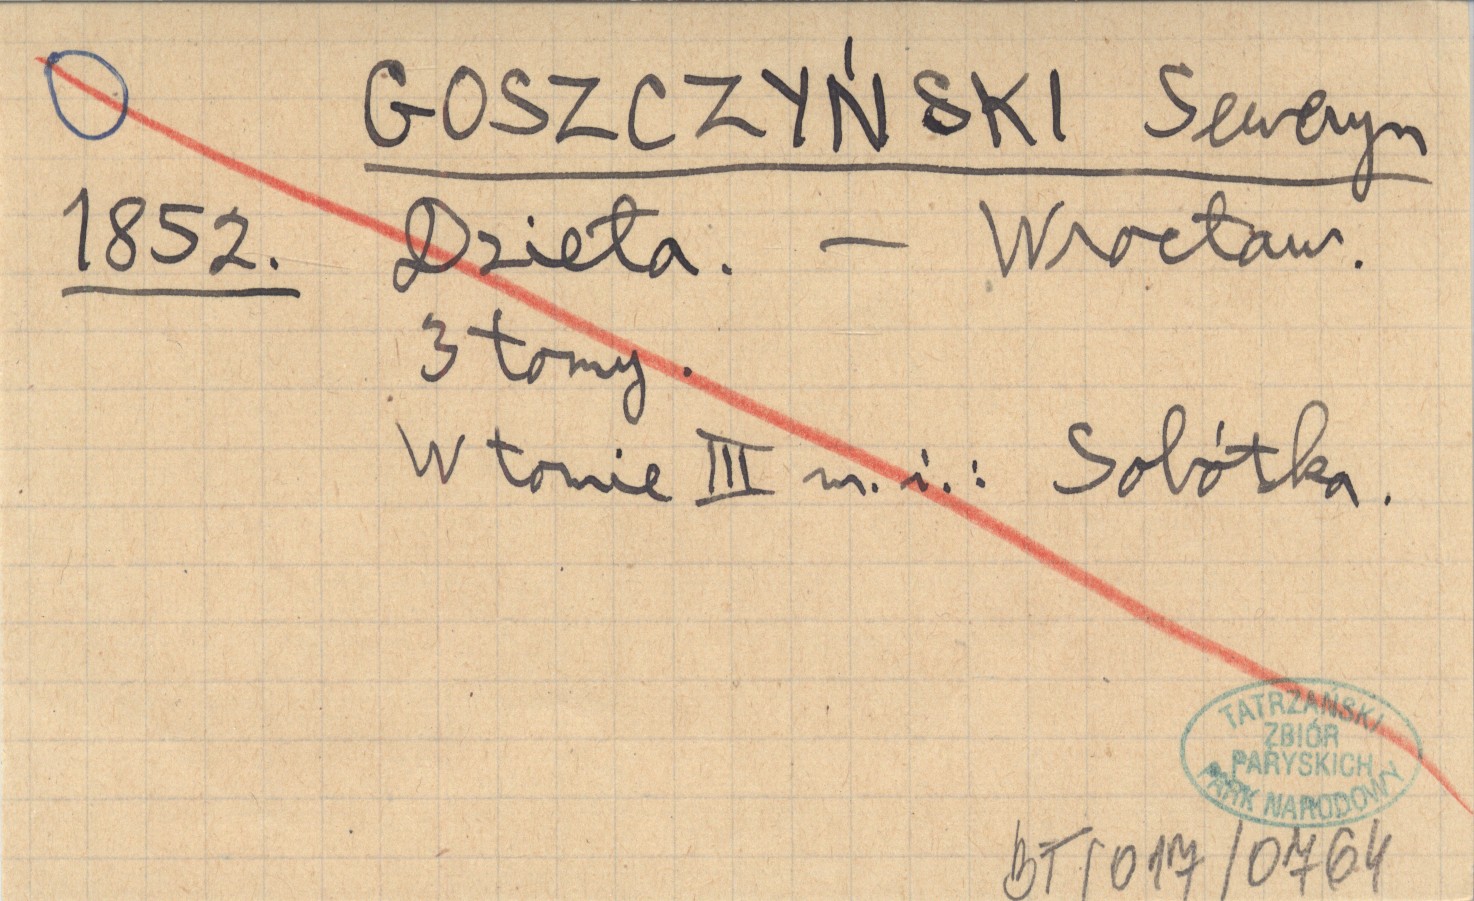 GOSZCZYŃSKI Seweryn
1852. Dzieła. — Wrocław.
3 tomy.
W tomie III m.i.: Sobótka.
TATRZAŃSKI
ZBIÓR
PARYSKICH
PARK NARODOWY
BT/017/0764